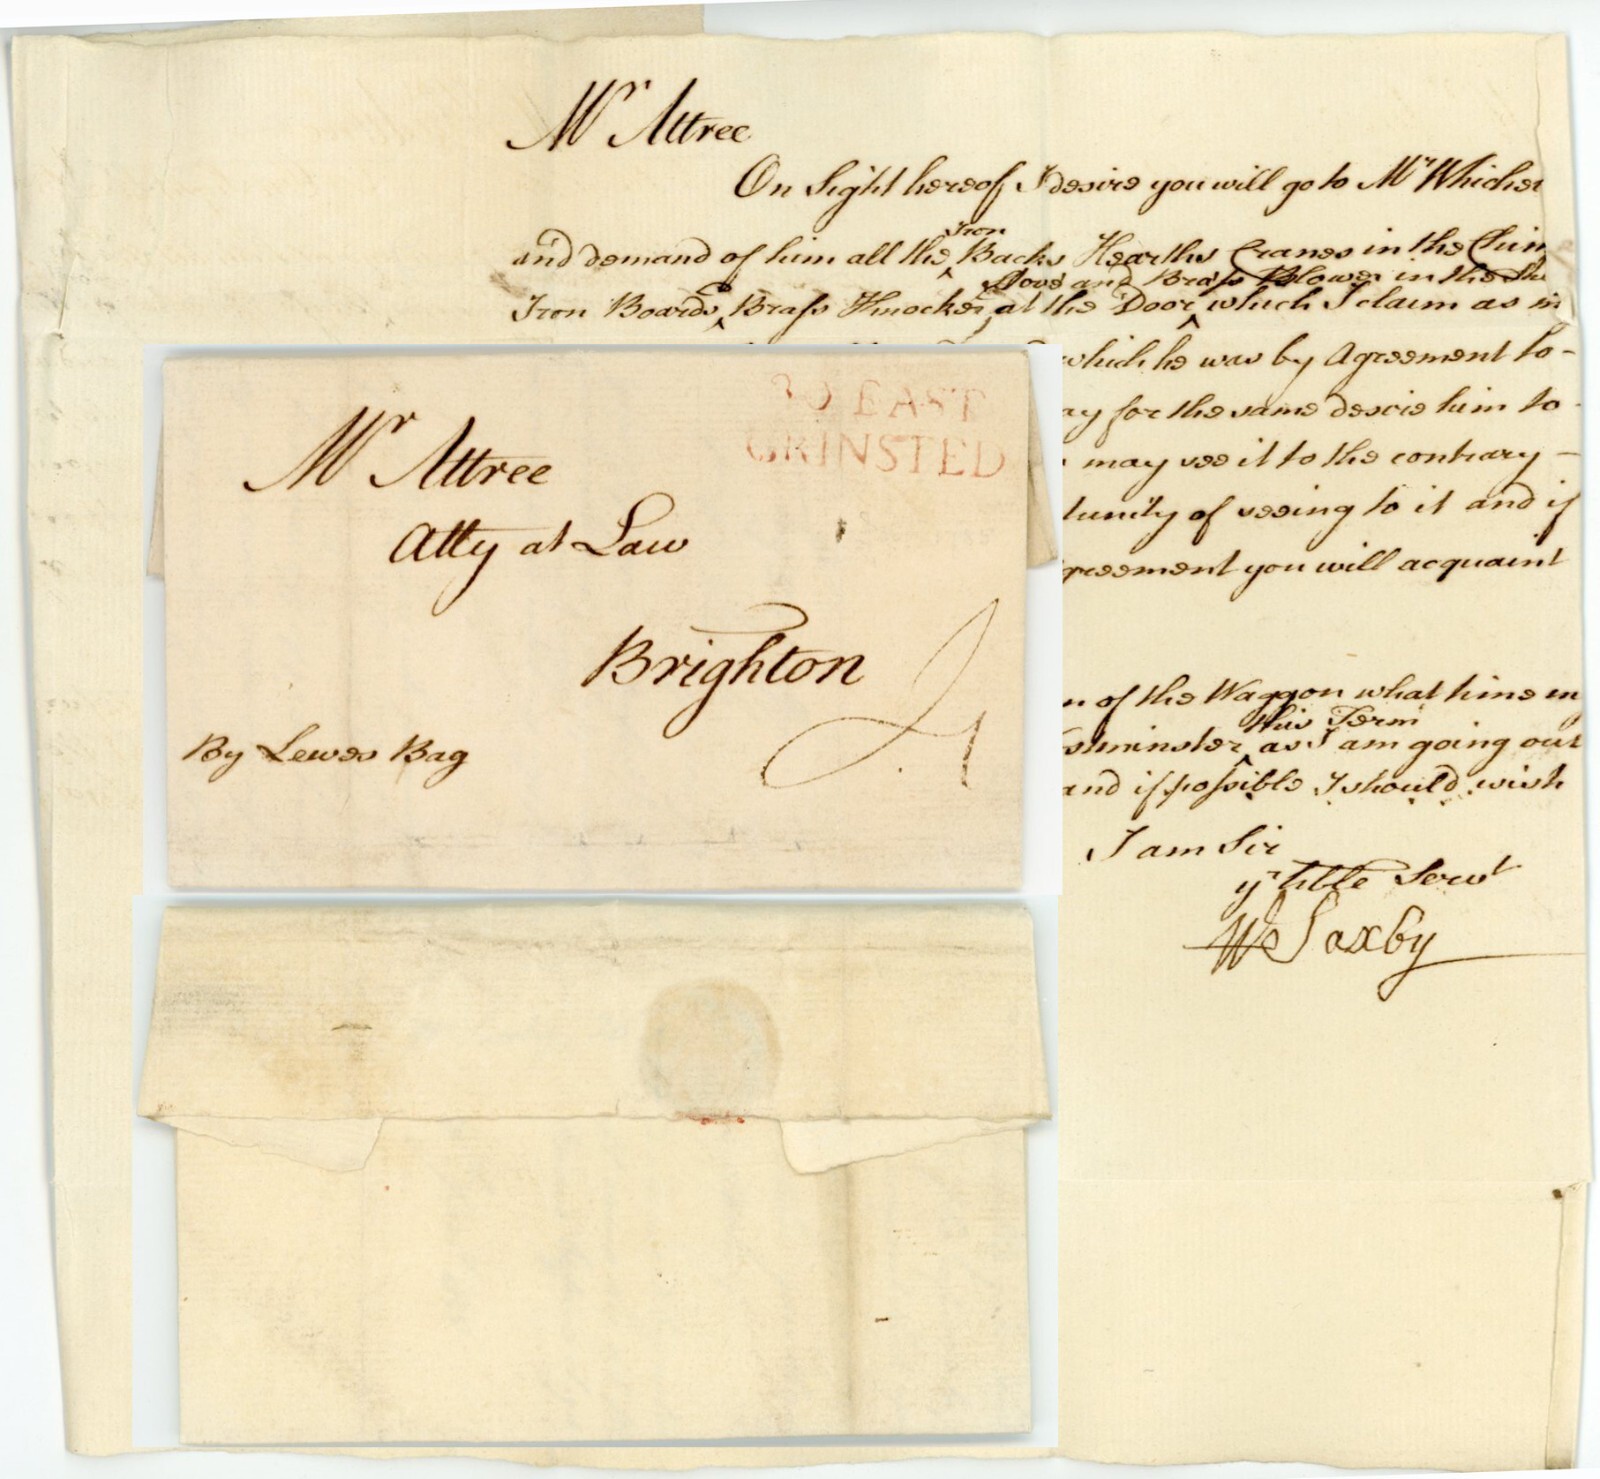 Mr Attree
On Sight hereof I desire you will go to Mr Whicher
and demand of him all the Iron Backs Hearths Cranes in the Chim
Stove and Brass Blower in the
Iron Boards, Brass Knocker at the Door which I claim as
which he was by Agreement to -
ay for the same desire him to -
may see it to the contrary -
tunity of seeing to it and if
greement you will acquaint
n of the Waggon what time
this Term
stminster as I am going out
and if possible I should wish
I am Sir
yr hble Servt
Wm Saxby
30 EAST
GRINSTED
Mr Attree
Atty at Law
Brighton
By Lewes Bag